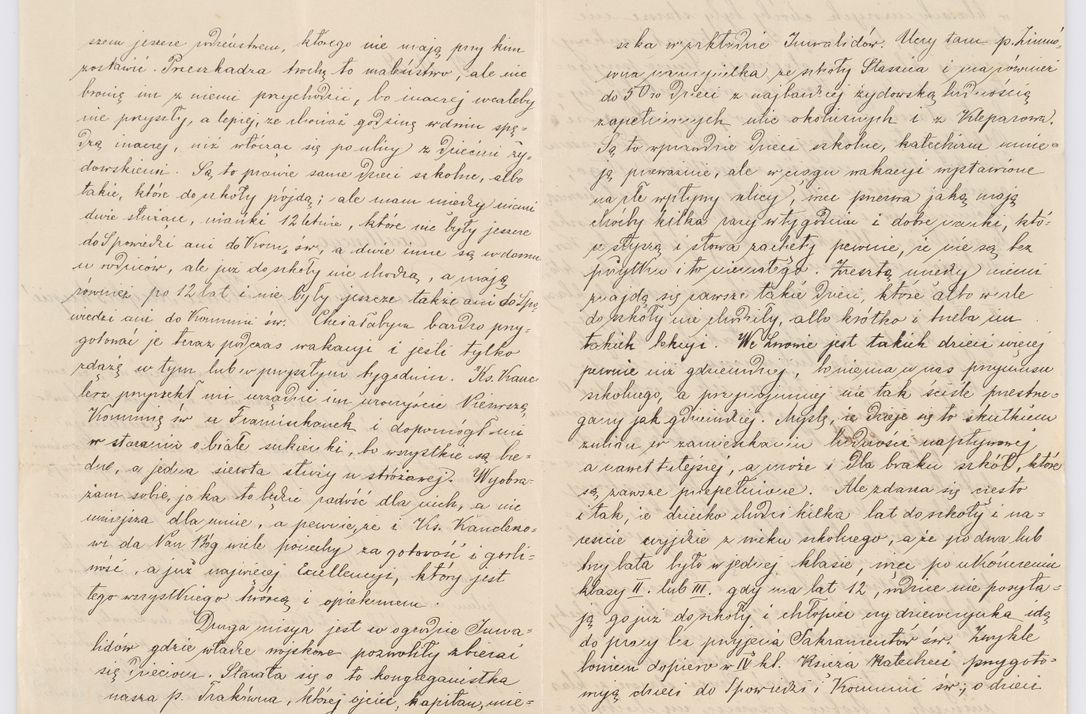 szem jeszcze rodzeństwem, którego nie mają przy kim
zostawić. Przeszkadza trochę to maleństwo, ale nie
bronię im z niemi przychodzić, bo inaczej wcaleby
nie przyszły, a lepiej, że chociaż godzinę w dniu spę-
dzą inaczej, niż włócząc się po ulicy z dziećmi ży-
dowskiemi. Są to prawie same dzieci szkolne, albo
takie, które do szkoły pójdą; ale mam między niemi
dwie starsze, 12 letnie, które nie były jeszcze
do Spowiedzi ani do Kom. św, a dwie inne są w domu
u rodziców, ale już do szkoły nie chodzą, a mają
również po 12 lat i nie były jeszcze także ani do Spo
wiedzi ani do Kommunii św. Chciałabym bardzo przy-
gotować je teraz podczas wakacyi i jeśli tylko
zdążę w tym lub w przyszłym tygodniu. Ks. Kanc
lerz przyrzekł mi urządzić im uroczyście Pierwszą
Kommunię św u Franciszkanek i dopomógł mi
w staraniu o białe sukienki, bo wszystkie są bie-
dne, a jedna sierota służy u stróżowej. Wyobra-
żam sobie, jaka to będzie radość dla nich, a nie
mniejsza dla mnie, a pewnie, że i Ks. Kanclerzo-
wi da Pan Bóg wiele pociechy za gotowość i gorli-
wość, a już najwięcej Excellencyi, który jest
tego wszystkiego twórcą i opiekunem.
Druga misya jest w ogrodzie Inwa-
lidów gdzie władze wojskowe pozwoliły zbierać
się dzieciom. Starała się o to kongreganistka
nasza p. Frakówna, której ojciec, kapitan, mie-
szka w zakładzie Inwalidów. Uczy tam p. Zimmó-
wna nauczycielka ze szkoły Staszica i ma również
do 50 dzieci z najbardziej żydowską ludnością
zapełnionych ulic okolicznych i z Kleparowa.
Są to wprawdzie dzieci szkolne, katechizm umie-
ją przeważnie, ale w ciągu wakacyi wystawione
na złe wpływy ulicy, więc przerwa jaką mają
choćby kilka razy w tygodniu i dobre nauki, któ-
re słyszą i słowa zachęty pewnie, że nie są bez
pożytku i to niemałego. Zresztą między niemi
znajdą się zawsze takie dzieci, które albo wcale
do szkoły nie chodziły, albo krótko i trzeba im
takich lekcyi. We Lwowie jest takich dzieci więcej
pewnie niż gdzieindziej, bo niema u nas przymusu
szkolnego, a przynajmniej nie tak ściśle przestrze-
gany jak gdzieindziej. Myślę, że dzieje się to skutkiem
zmian w zamieszkaniu ludności napływowej
a nawet tutejszej, a może i dla braku szkół, które
są zawsze przepełnione. Ale zdarza się często
i tak, że dziecko chodzi kilka lat do szkoły i na-
reszcie wyjdzie z wieku szkolnego, a że po dwa lub
trzy lata było w jednej klasie, więc po ukończeniu
klasy II. lub III. gdy ma lat 12, rodzice nie posyła-
ją go już do szkoły i chłopiec czy dziewczynka idą
do pracy bez przyjęcia Sakramentów św. Zwykle
bowiem dopiero w IV kl. Księża Katecheci przygoto-
wują dzieci do Spowiedzi i Kommunii św; o dzieci